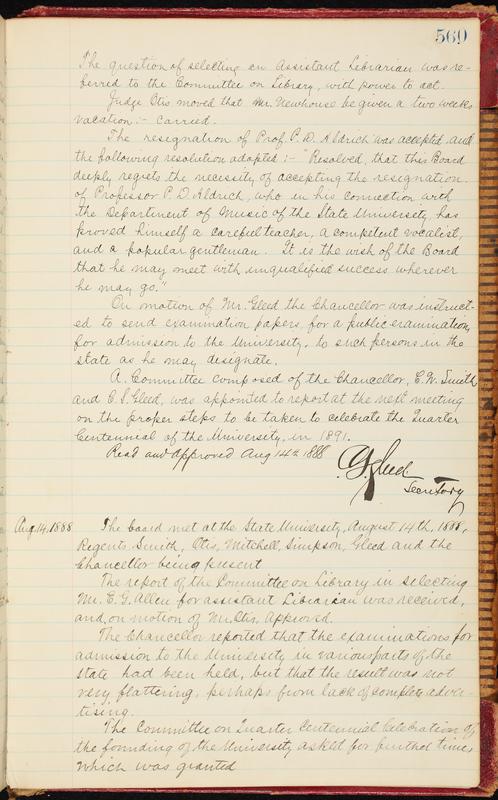 569
The question of selecting an Assistant Librarian was re-
ferred to the Committee on Library, with power to act.
Judge Otis moved that Mr. Newhouse be given a two weeks
vacation :- Carried.
The resignation of Prof. P. D. Aldrich was accepted and
the following resolution adopted :- "Resolved, that this Board
deeply regrets the necessity of accepting the resignation
of Professor P. D. Aldrich, who in his connection with
the Department of Music of the State University, has
proved himself a careful teacher, a competent vocalist,
and a popular gentleman. It is the wish of the Board
that he may meet with unqualified success wherever
he may go."
On motion of Mr. Gleed the Chancellor was instruct-
ed to send examination papers, for a public examination,
for admission to the University, to such persons in the
state as he may designate.
A Committee composed of the Chancellor, C. W. Smith
and C. S. Gleed, was appointed to report at the next meeting
on the proper steps to be taken to celebrate the Quarter
Centennial of the University, in 1891.
Read and approved Aug 14th 1888
C. S. Gleed
Secretary
Aug. 14, 1888
The board met at the State University, August 14th, 1888,
Regents Smith, Otis, Mitchell, Simpson, Gleed and the
Chancellor being present
The report of the Committee on Library in selecting
Mr. E. G. Allen for assistant Librarian was received,
and, on motion of Mr. Otis, Approved.
The Chancellor reported that the examinations for
admission to the University in various parts of the
state had been held, but that the result was not
very flattering, perhaps from lack of complete adver-
tising.
The Committee on Quarter Centennial Celebration of
the founding of the University asked for further time,
which was granted